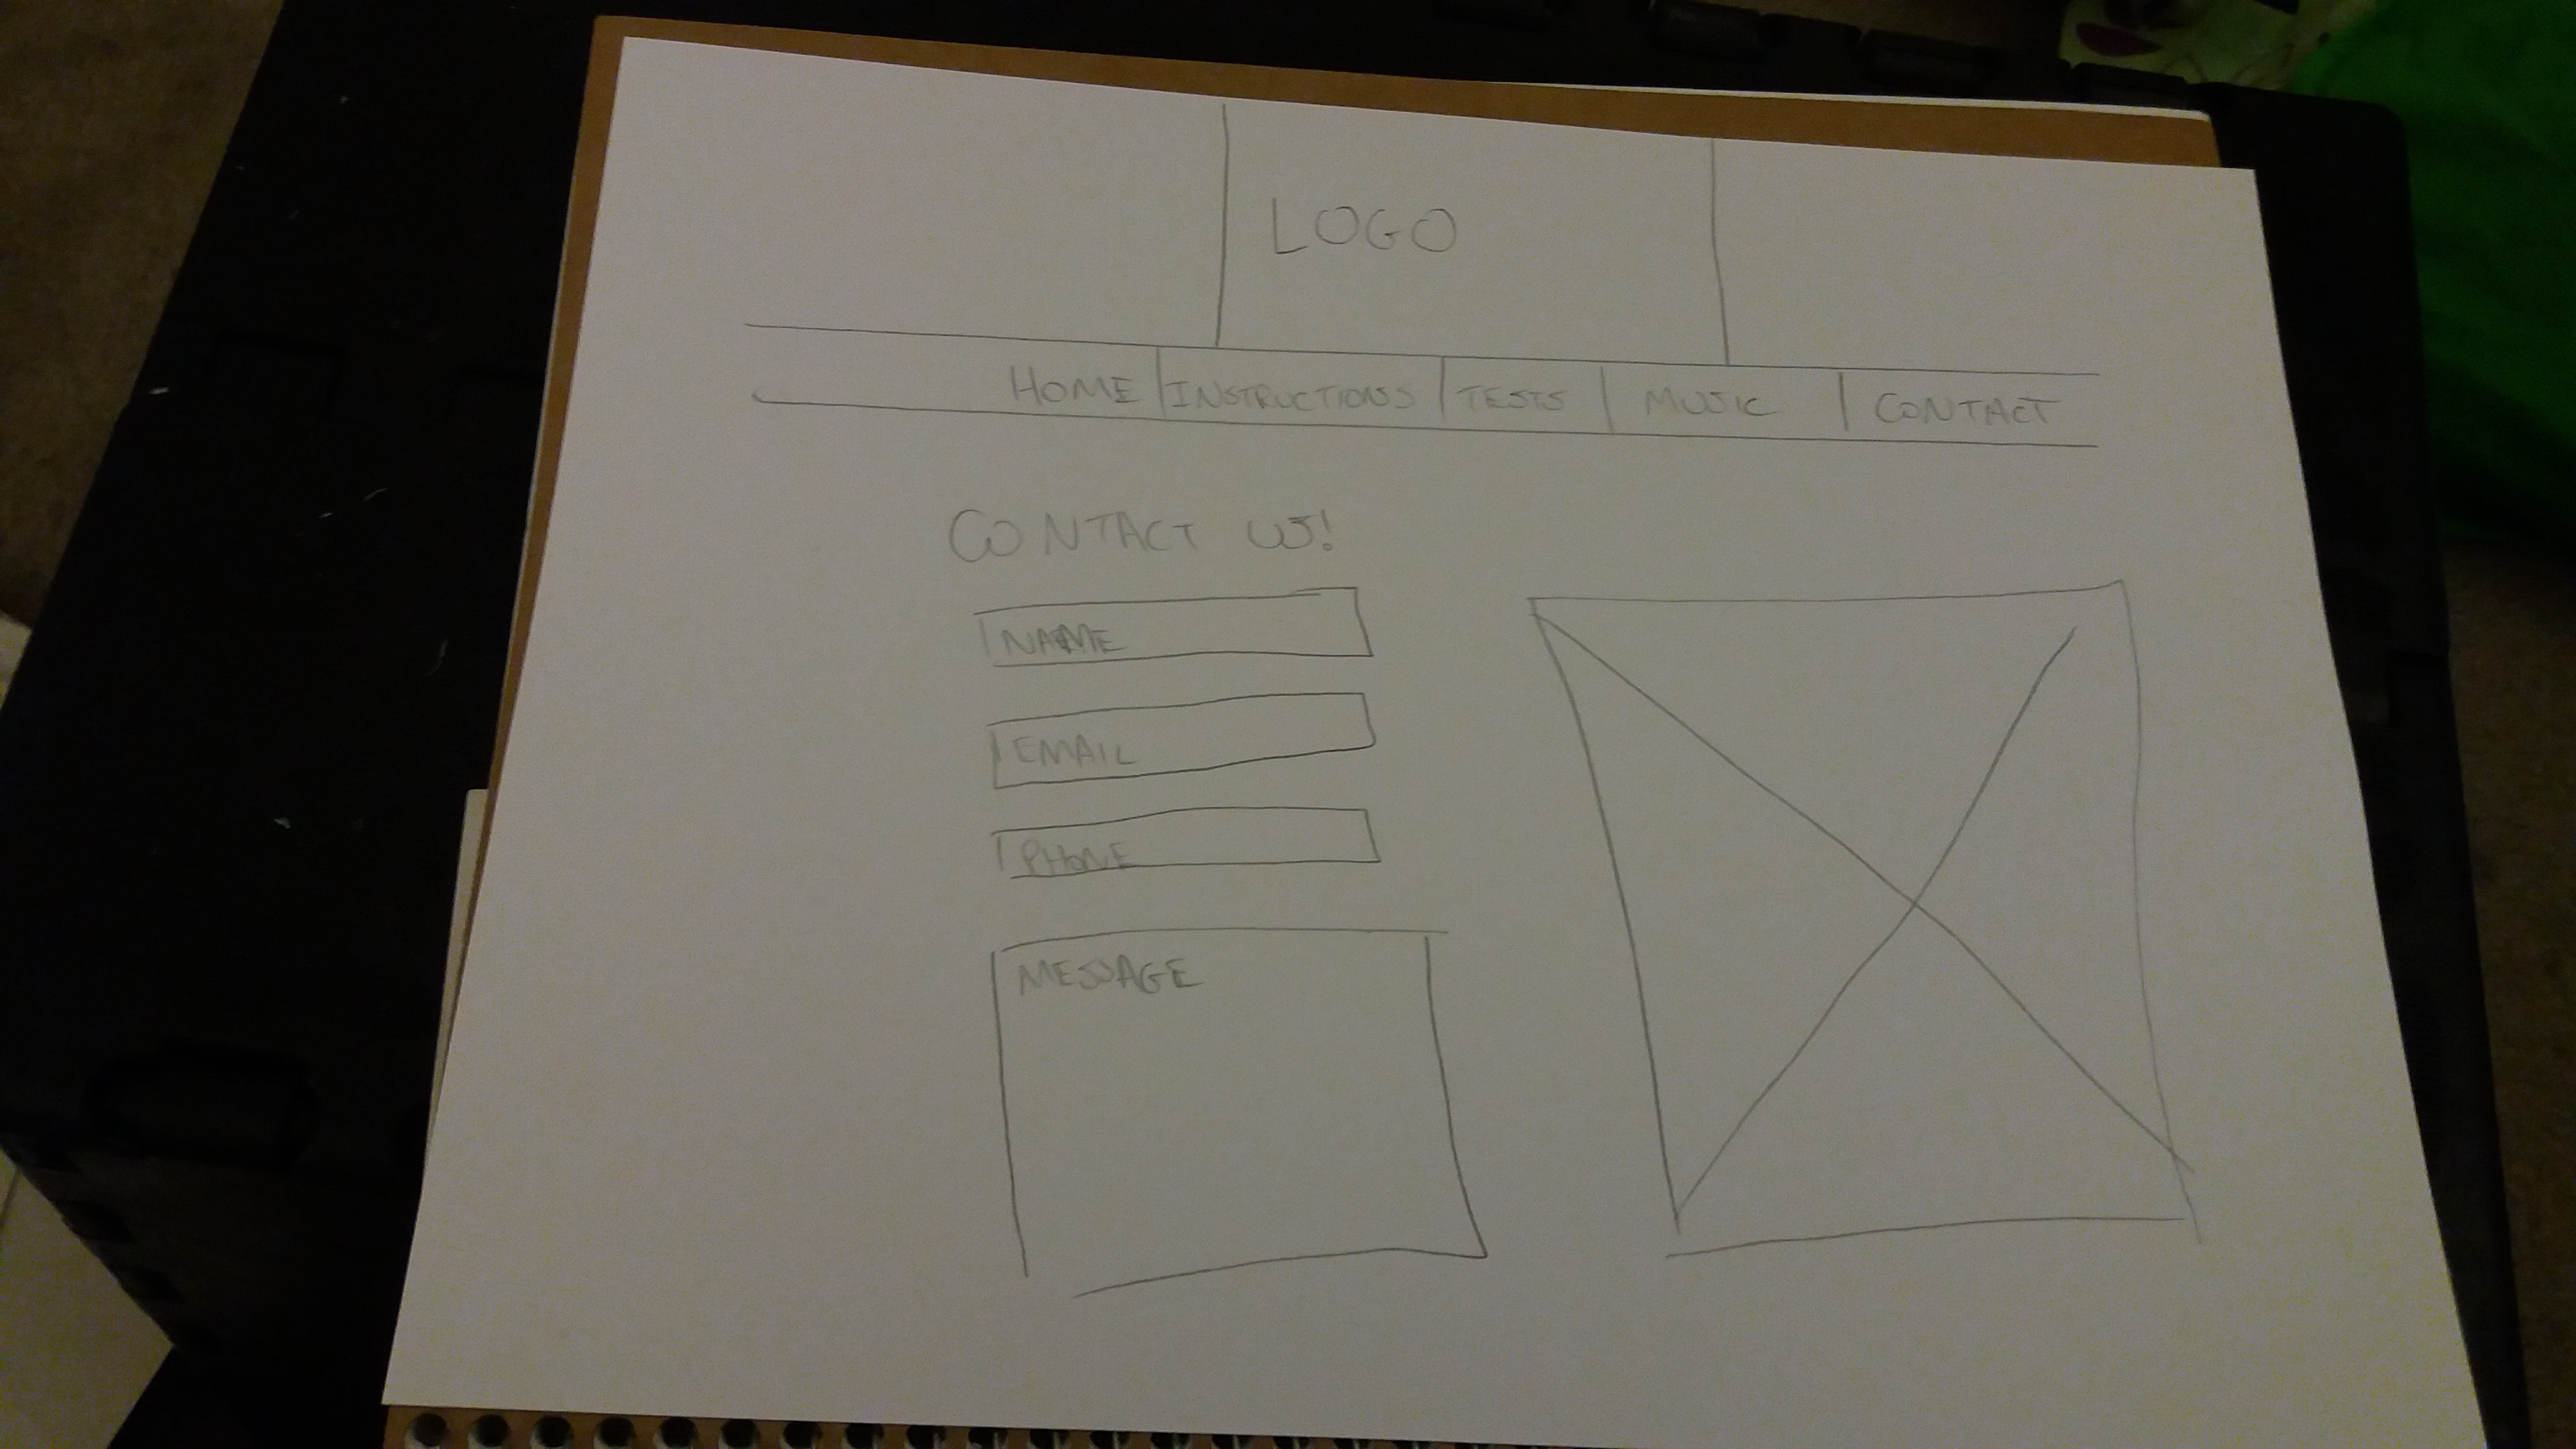 LOGO
HOME INSTRUCTIONS TESTS MUSIC CONTACT
CONTACT US!
NAME
EMAIL
PHONE
MESSAGE